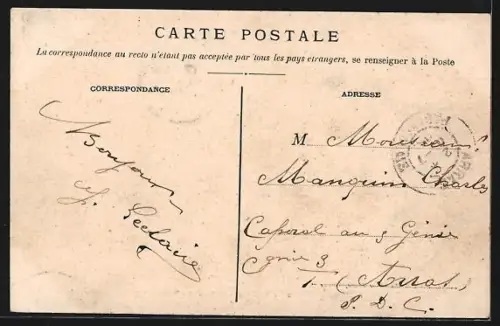 CARTE POSTALE
La correspondance au recto n'étant pas acceptée par tous les pays étrangers, se renseigner à la Poste
CORRESPONDANCE
ADRESSE
Bonjour
Leclaire
M Monsieur
Manguin Charles
Caporal au 3 Génie
Cgnie 3
Arras
P. D. C.
ARRAS